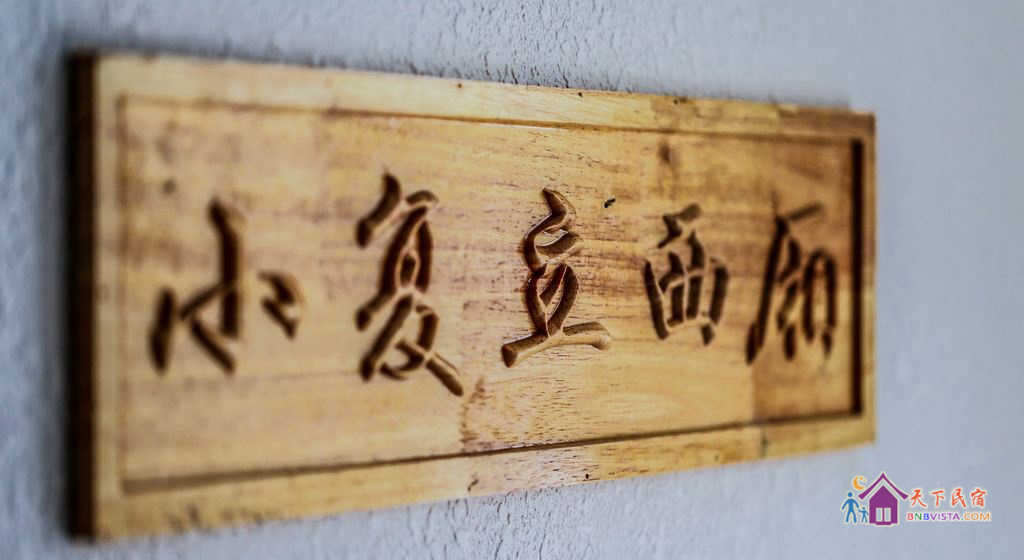 小夏西厢
天下民宿
BNBVISTA.COM